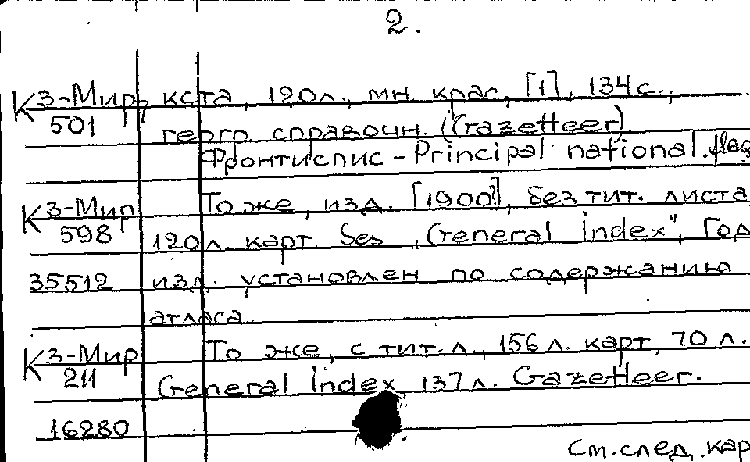 2.
К3-Мир, кста, 120л., мн. крас, [1], 134с.,
501 геогр. справочн. (Gazetteer)
Фронтиспис - Principal national. flag
К3-Мир То же, изд. [1900?], без тит. листа
598 120л. карт. без "General index", Год
35512 изд. установлен по содержанию
атласа.
К3-Мир То же, с тит. л., 156 л. карт, 70 л.
211 General index, 137л. Gazetteer.
16280
См. след. кар